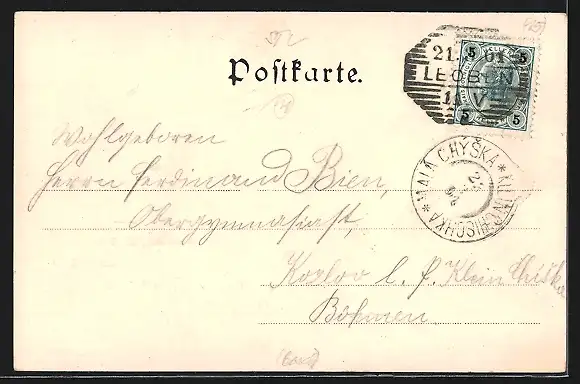 Postkarte.
21. 01
LEOBEN
5 5
5 5
MALÁ CHÝŠKA * KLEINCHISCHKA *
Wohlgeboren
Herrn Ferdinand Bien,
Obergymnasiast,
l. P. Klein Chiška
Böhmen.